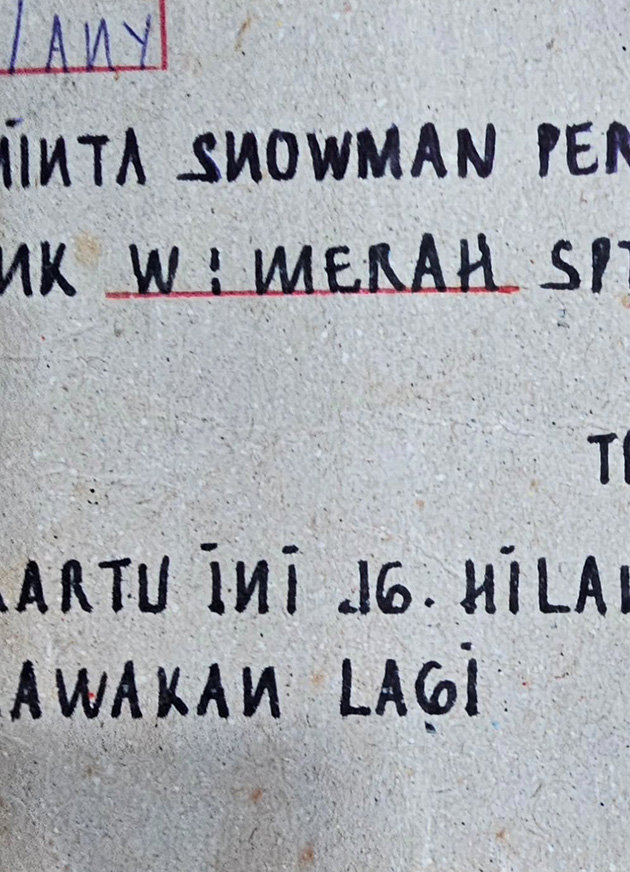 /ANY
MINTA SNOWMAN PER
NK W : MERAH SPT
KARTU INI JG. HILAN
BAWAKAN LAGI